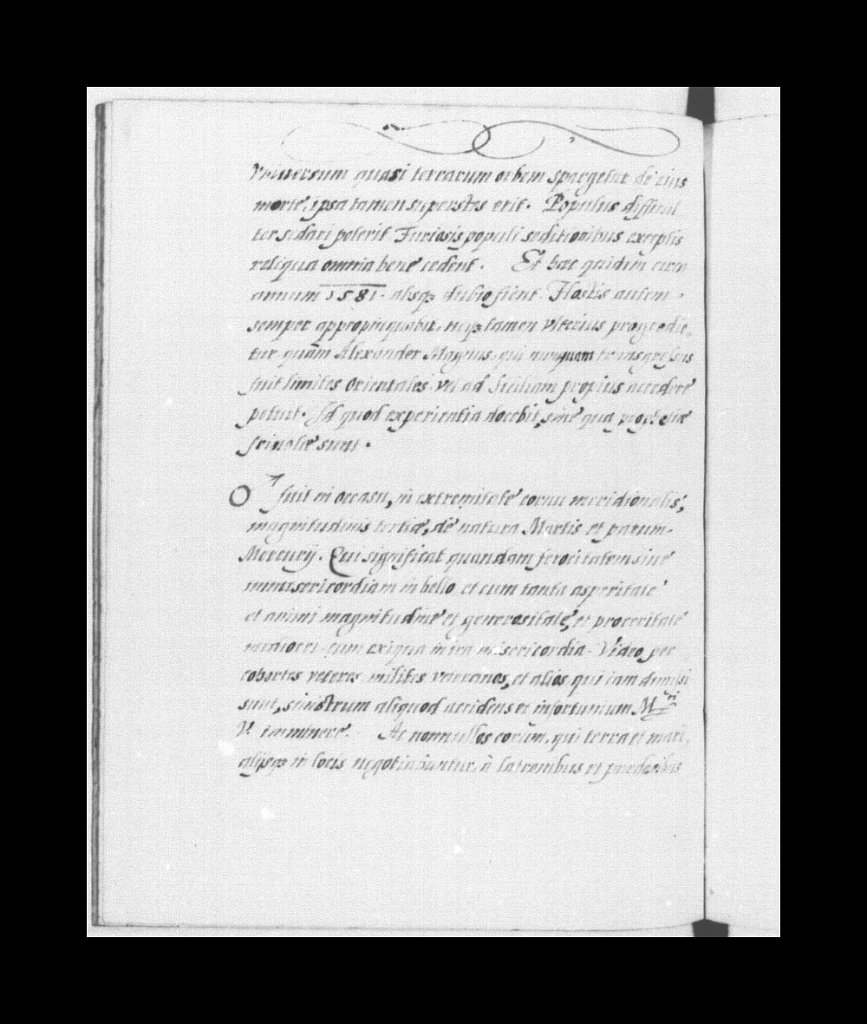 Vniuersum quasi terrarum orbem spargetur de eius
morte, ipsa tamen superstes erit. Populus difficul
ter sedari poterit. Furiosis populi seditionibus exceptis
reliqua omnia bene cedent. Et hæc quidem circa
annum 1581. absq3 dubio fient. Hostis autem
semper appropinquabit, neq3 tamen vlterius progredie-
tur quàm Alexander Magnus, qui nunquam transgressus
fuit limites Orientales, vel ad Siciliam propius accedere
potuit. Id quod experientia docebit, sine qua prophetiæ
friuolæ sunt.
O fuit in occasu, in extremitate cornu meridionalis,
magnitudinis tertiæ, de natura Martis et parum
Mercurij. Qui significat quandam ferocitatem sine
misericordiam in bello et cum tanta asperitate
et animi magnitudine et generositate, et proceritate
mediocri cum exigua in ira misericordia. Video per
cohortes veteres, milites veteranos, et alios qui iam dimissi
sunt, sinistrum aliquod accidens et infortunium M
V. imminere. Ac nonnullos eorum, qui terra et mari,
alijsq3 in locis negotiabuntur, à latronibus et prædonibus